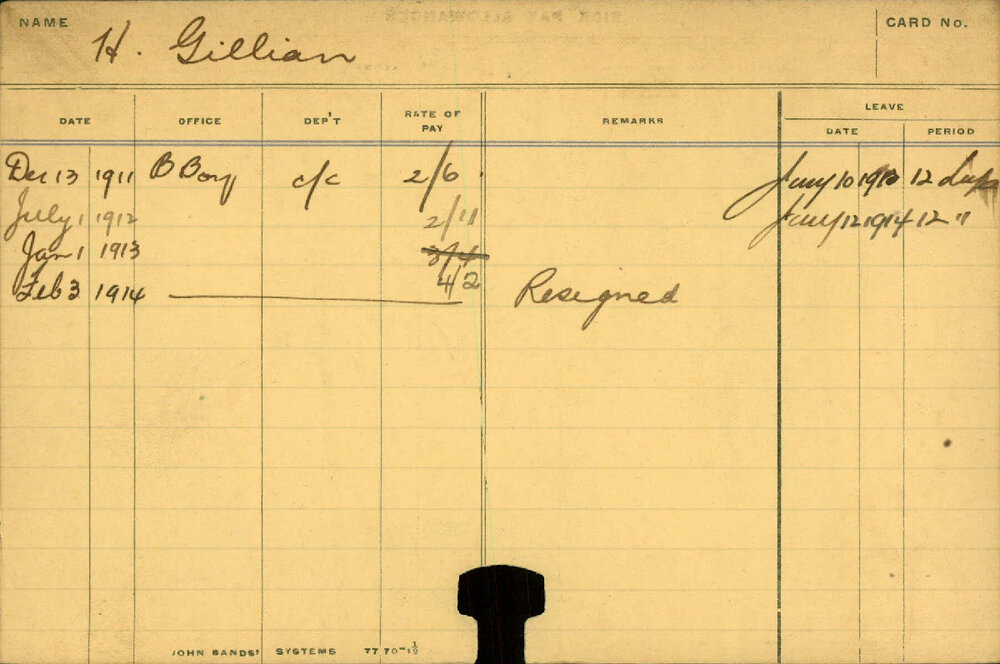 NAME H. Gillian CARD No.
DATE OFFICE DEP'T RATE OF PAY REMARKS LEAVE
DATE PERIOD
Dec 13 1911 B Boy c/c 2/6 Jany 10 1913 12 days
July 1 1912 2/11 Jany 12 1914 12 "
Jan 1 1913 3/4
4/2
Feb 3 1914 Resigned
JOHN SANDS' SYSTEMS 77 70-1/2